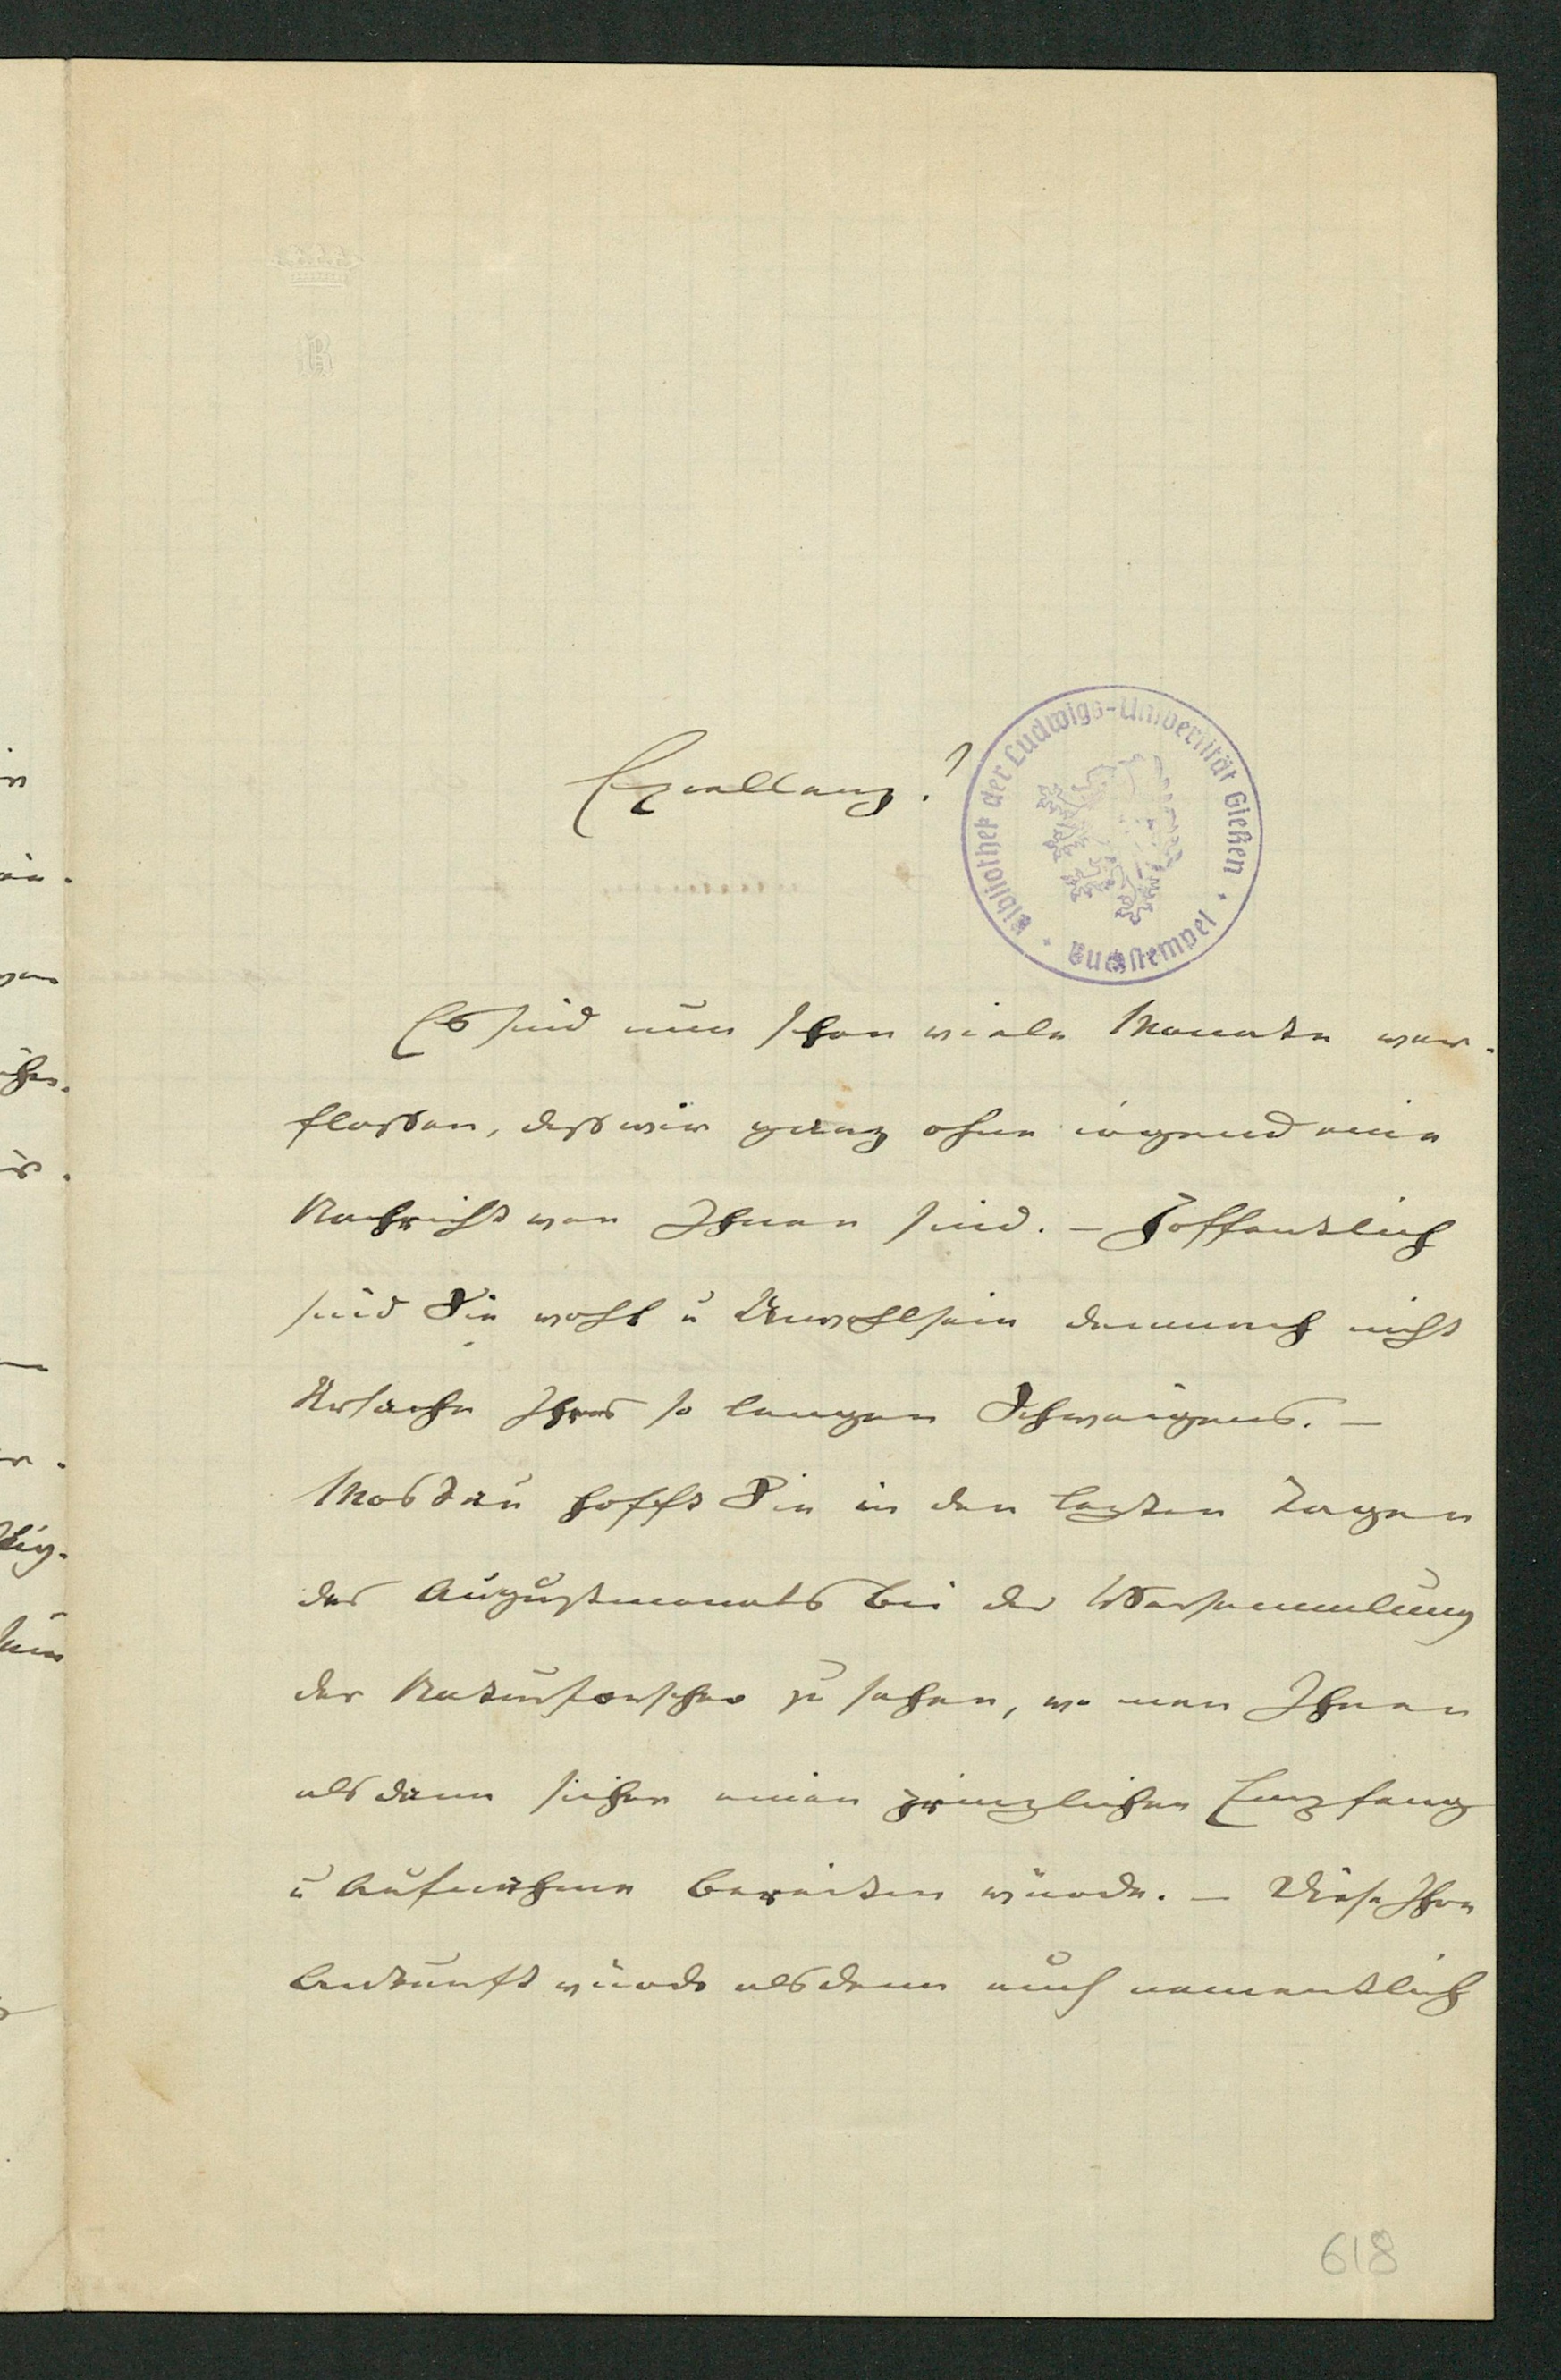 Bibliothek der Ludwigs-Universität Gießen
Buchstempel
Exzellenz!
Es sind nun schon viele Monate ver-
flossen, daß wir ganz ohne irgend eine
Nachricht von Ihnen sind. – Hoffentlich
sind Sie wohl u Unwohlsein demnach nicht
Ursache Ihres so langen Schweigens. –
Moskau hofft Sie in den letzten Tagen
des Augustmonats bei der Versammlung
der Naturforscher zu sehen, wo man Ihnen
alsdann sicher einen prinzlichen Empfang
u Aufnahme bereiten würde. – Diese Ihre
Ankunft würde alsdann auch namentlich
618